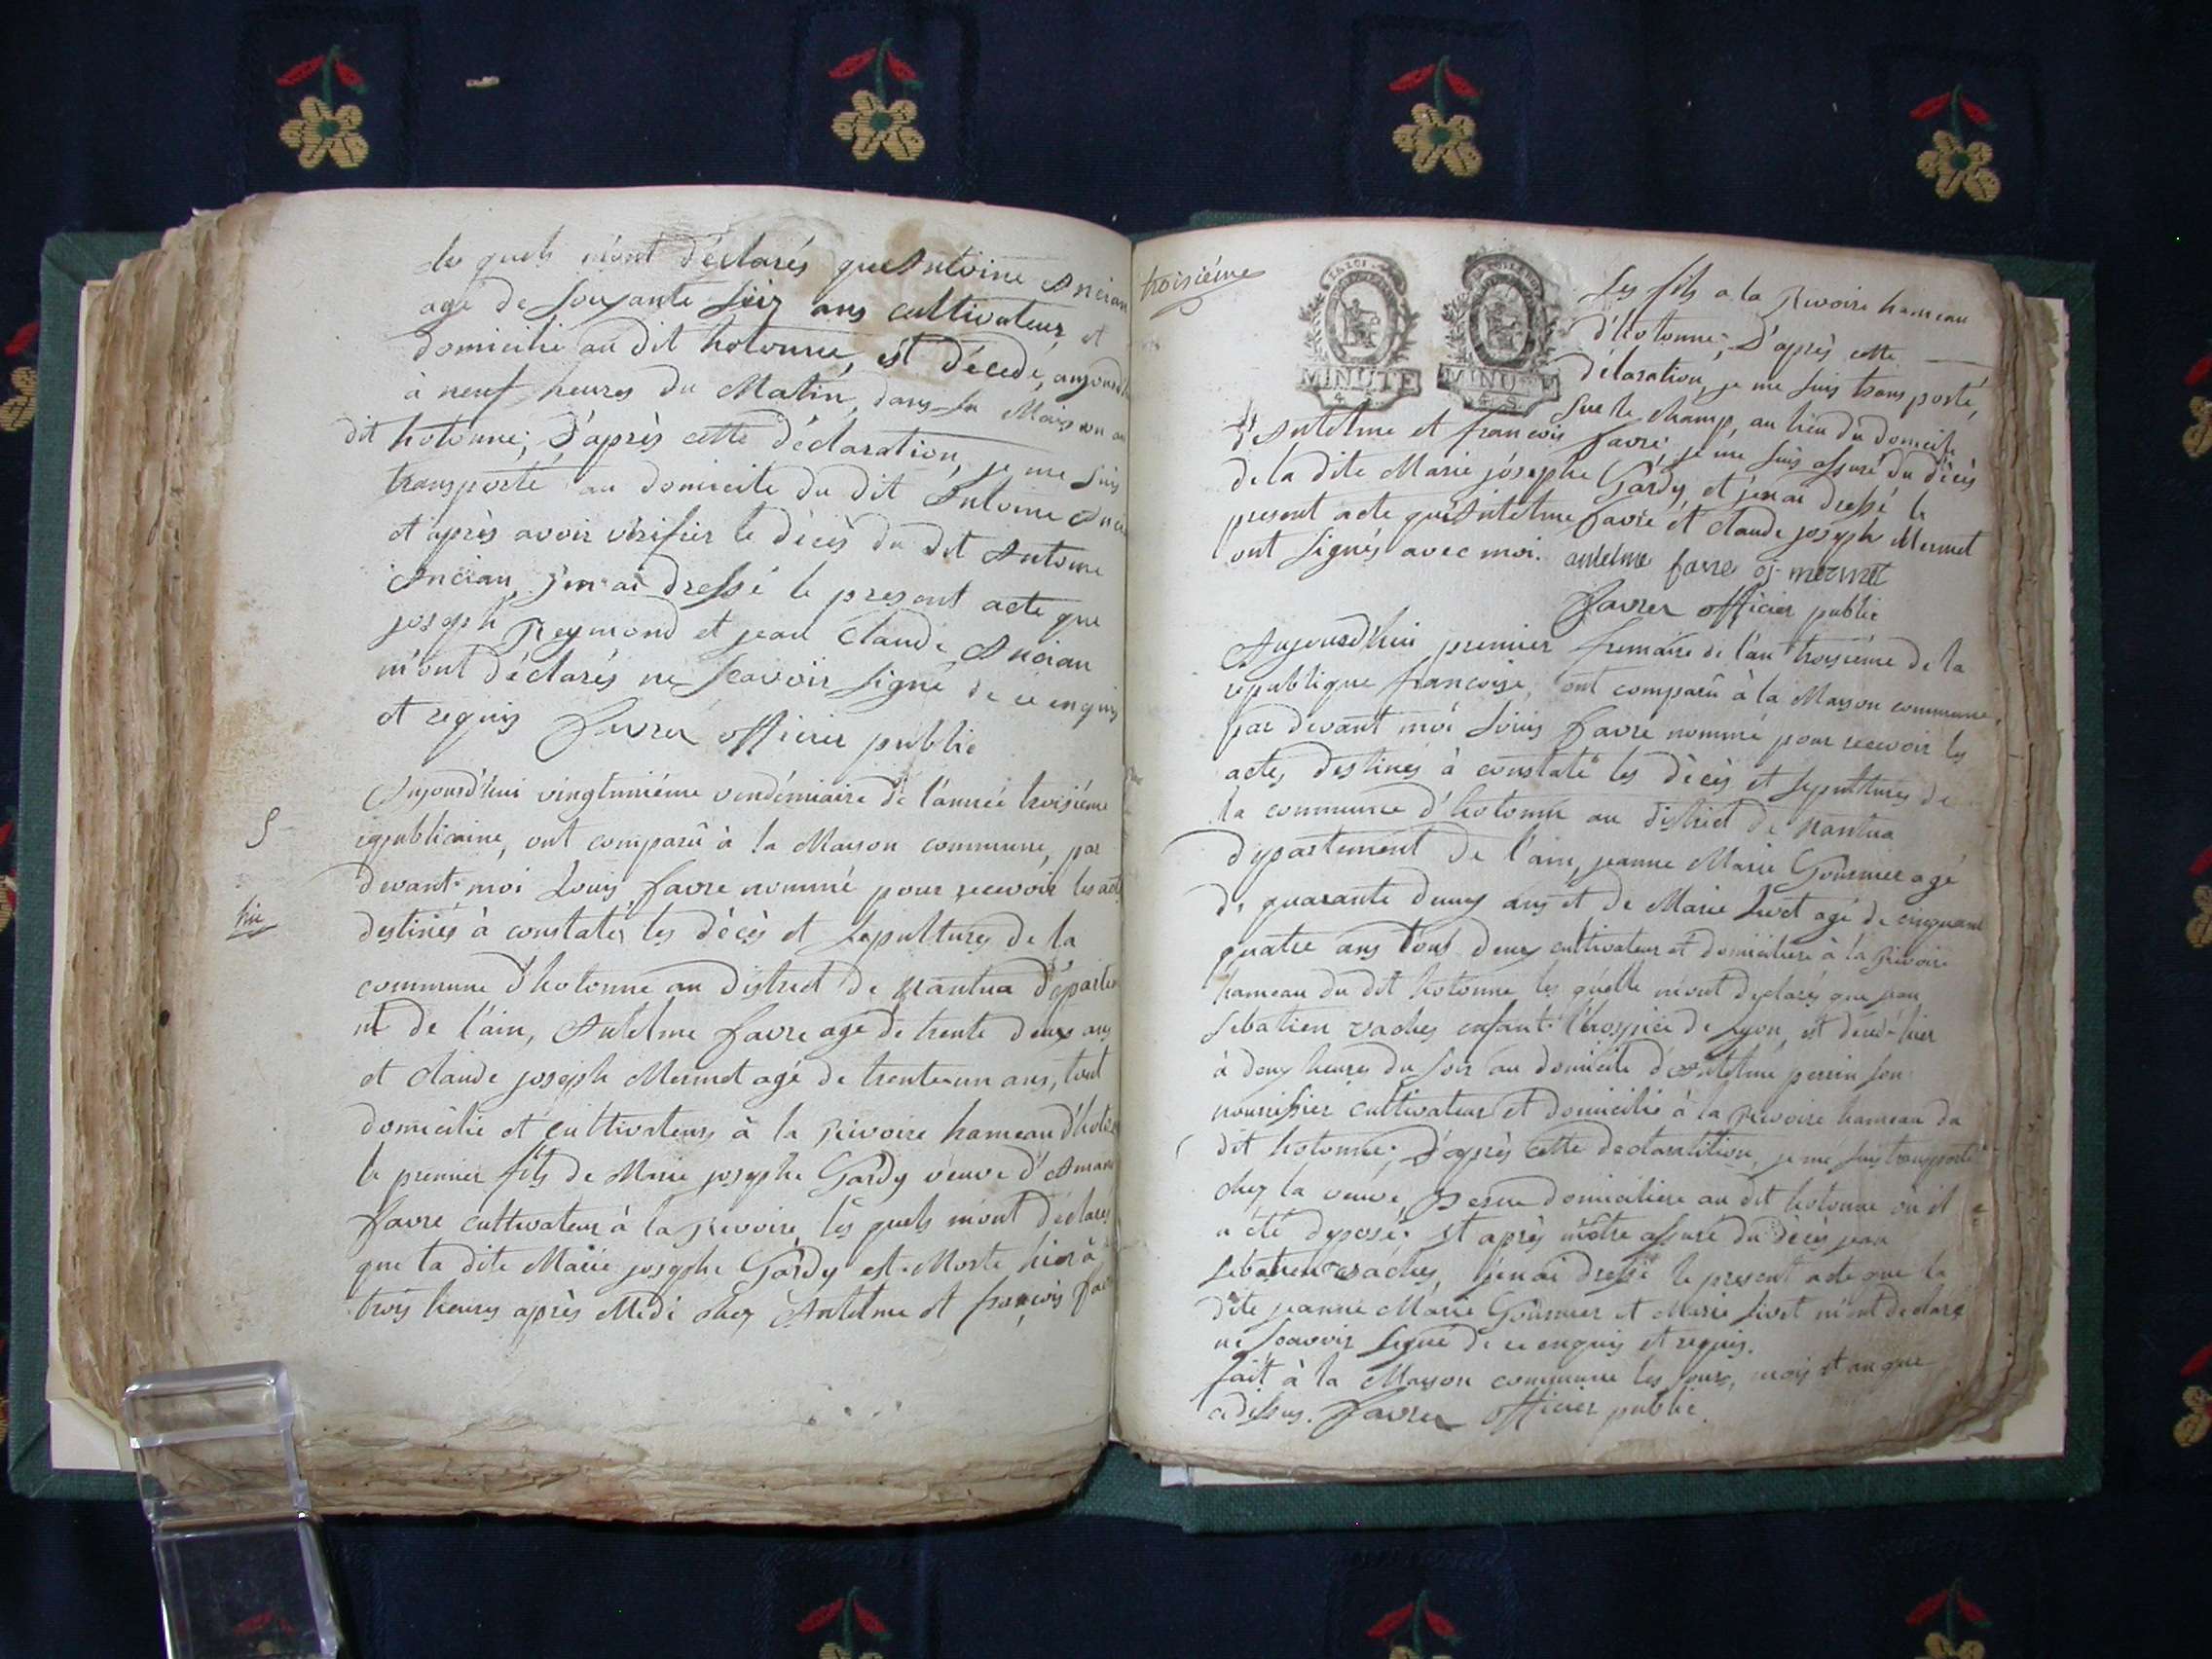 les quels m'ont déclarés que Antoine Ancian
agé de soixante six ans cultivateur, et
domicilié au dit hotonne, est décedé, aujourd
à neuf heures du Matin, dans sa Maison au
dit hotonne; D'après cette déclaration, je me suis
transporté au domicile du dit Antoine Anci
et après avoir vérifier le décès du dit Antoine
Ancian, j'en ai dressé le present acte que
joseph Reymond et jean Claude Ancian
m'ont déclarés ne scavoir signé de ce enquis
et requis favre officier public
Aujourd'hui vingtunième vendémiaire de l'année troisième
republicaine, ont comparû à la Maison commune, par
devant moi Louis favre nommé pour recevoir les act
destinés à constater les décès et sepultures de la
commune d'hotonne au district de Nantua départem
nt de l'ain, Antelme favre agé de trente deux ans
et claude joseph Mermet agé de trente un ans, tout
domicilié et cultivateurs à la Rivoire hameau d'hoton
le premier fils de Marie josephe Gardy veuve d'
favre cultivateur à la Rivoire, les quels m'ont déclarés
que la dite Marie josephe Gardy est Morte hier à
trois heures après Midi chez Antelme et françois fav
troisième
MINUTE
4. S.
MINUTE
4. S.
ses fils a la Rivoire hameau
d'hotonne; D'après cette
déclaration, je me suis transporté,
sur le champ, au lieu du domicile
d'Antelme et francois favre; je me suis assuré du décès
de la dite Marie josephe Gardy, et j'en ai dressé le
present acte qu'Antelme favre et claude joseph Mermet
ont signés avec moi. antelme favre cj mermet
favre officier public
Aujourd'hui premier frimaire de l'an troisième de la
republique francoise, ont comparû à la Maison commune,
par devant moi Louis favre nommé pour recevoir les
actes destinés à constaté les décès et sepultures de
la commune d'hotonne au district de Nantua
departement de l'ain, jeanne Marie agé
de quarante deux ans et de Marie Livet agé de cinquante
quatre ans tout deux cultivateur et domiciliere à la Rivoire
hameau du dit hotonne les quelle m'ont declarés que jean
sebatien vaches enfant l'hospice de Lyon, est decedé hier
à deux heures du soir au domicile d'Antelme perrin son
nourissier cultivateur et domicilié à la Rivoire hameau du
dit hotonne; D'après cette declaration, je me suis transporté
chez la veuve domiciliere au dit hotonne où il
a été deposé; et après m'être assuré du décès jean
sebatien vaches, j'en ai dressé le present acte que la
dite jeanne Marie et Marie Livet m'ont declaré
ne scavoir signé de ce enquis et requis.
fait à la Maison commune les jour, mois et an que
cidessus. favre officier public.